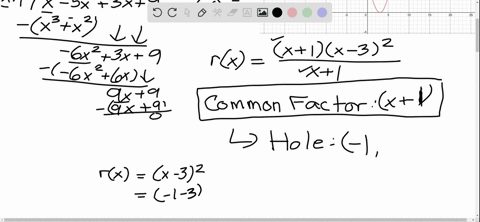 x -5x +3x+9
-(x³+x²)
-6x²+3x+9
-(-6x²+6x)
9x+9
-(9x+9)
0
r(x) = (x+1)(x-3)²
x+1
Common Factor: (x+1)
↳ Hole: (-1,
r(x) = (x-3)²
= (-1-3)